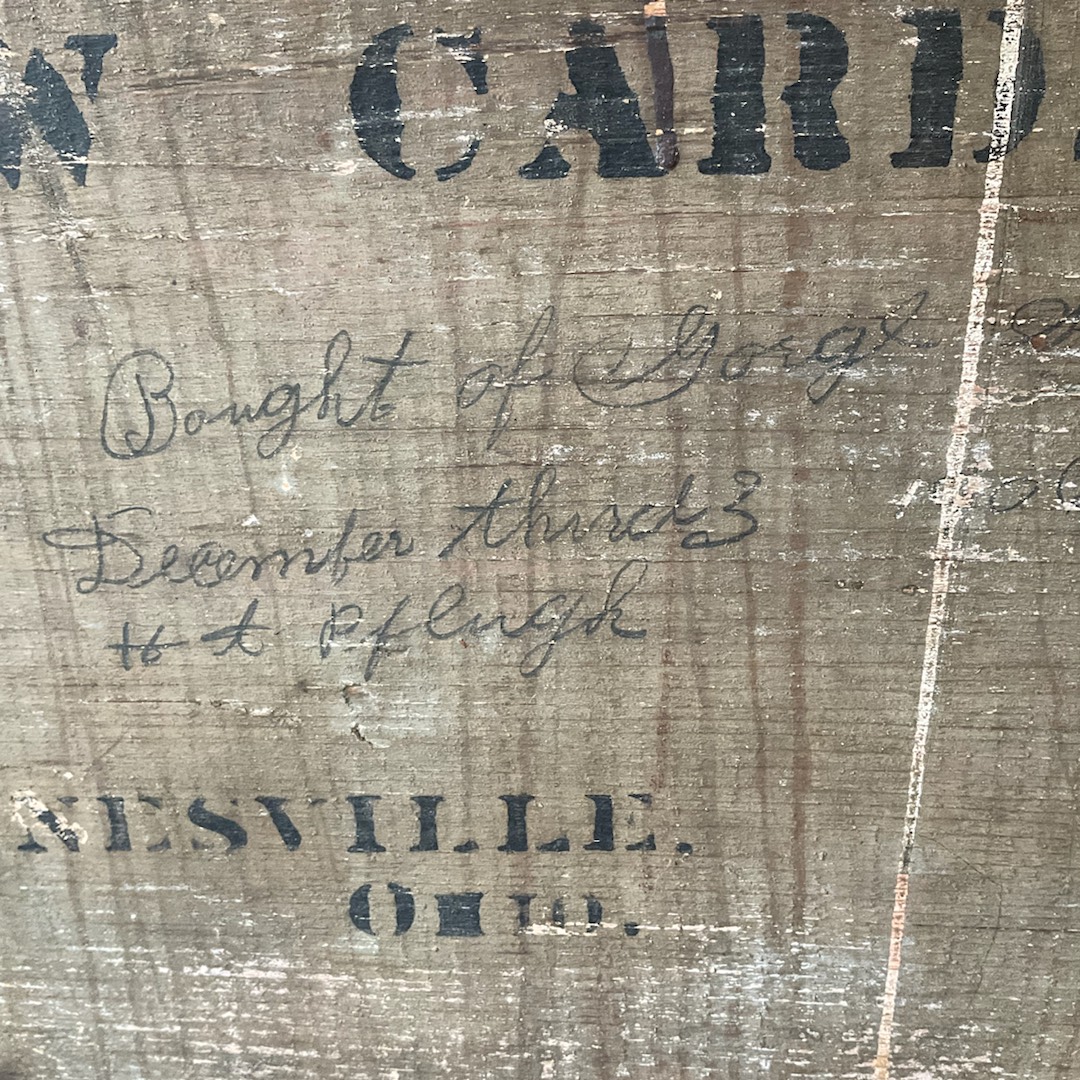 W CARD
Bought of Gorge
December third 3
H t Pflugh
NESVILLE.
OHIO.